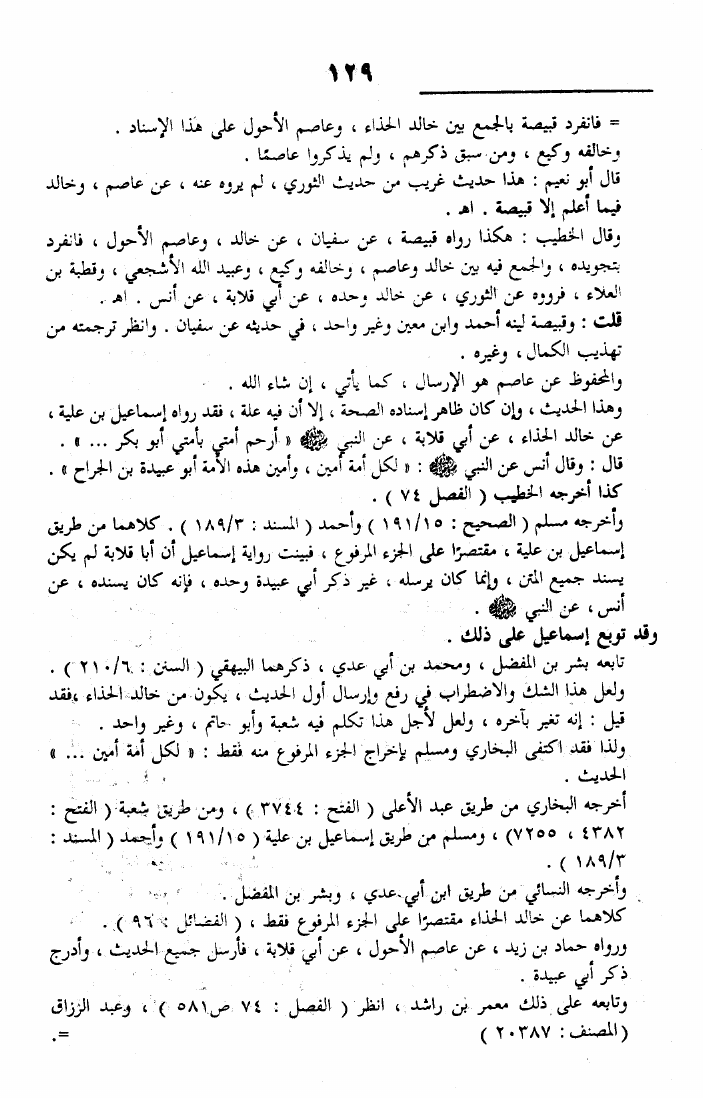 ١٢٩
= فانفرد قبيصة بالجمع بين خالد الحذاء ، وعاصم الأحول على هذا الإسناد .
وخالفه وكيع ، ومن سبق ذكرهم ، ولم يذكروا عاصمًا .
قال أبو نعيم : هذا حديث غريب من حديث الثوري ، لم يروه عنه ، عن عاصم ، وخالد
فيما أعلم إلا قبيصة . اهـ .
وقال الخطيب : هكذا رواه قبيصة ، عن سفيان ، عن خالد ، وعاصم الأحول ، فانفرد
بتجويده ، والجمع فيه بين خالد وعاصم ، وخالفه وكيع ، وعبيد الله الأشجعي ، وقطبة بن
العلاء ، فرووه عن الثوري ، عن خالد وحده ، عن أبي قلابة ، عن أنس . اهـ .
قلت : وقبيصة لينه أحمد وابن معين وغير واحد ، في حديثه عن سفيان . وانظر ترجمته من
تهذيب الكمال ، وغيره .
والمحفوظ عن عاصم هو الإرسال ، كما يأتي ، إن شاء الله .
وهذا الحديث ، وإن كان ظاهر إسناده الصحة ، إلا أن فيه علة ، فقد رواه إسماعيل بن علية ،
عن خالد الحذاء ، عن أبي قلابة ، عن النبي ﷺ « أرحم أمتي بأمتي أبو بكر ... » .
قال : وقال أنس عن النبي ﷺ : « لكل أمة أمين ، وأمين هذه الأمة أبو عبيدة بن الجراح » .
كذا أخرجه الخطيب ( الفصل ٧٤ ) .
وأخرجه مسلم ( الصحيح : ١٩١/١٥ ) وأحمد ( المسند : ١٨٩/٣ ) . كلاهما من طريق
إسماعيل بن علية ، مقتصرًا على الجزء المرفوع ، فبينت رواية إسماعيل أن أبا قلابة لم يكن
يسند جميع المتن ، وإنما كان يرسله ، غير ذكر أبي عبيدة وحده ، فإنه كان يسنده ، عن
أنس ، عن النبي ﷺ .
وقد توبع إسماعيل على ذلك .
تابعه بشر بن المفضل ، ومحمد بن أبي عدي ، ذكرهما البيهقي ( السنن : ٢١٠/٦ ) .
ولعل هذا الشك والاضطراب في رفع وإرسال أول الحديث ، يكون من خالد الحذاء ، فقد
قيل : إنه تغير بآخره ، ولعل لأجل هذا تكلم فيه شعبة وأبو حاتم ، وغير واحد .
ولذا فقد اكتفى البخاري ومسلم بإخراج الجزء المرفوع منه فقط : « لكل أمة أمين ... »
الحديث .
أخرجه البخاري من طريق عبد الأعلى ( الفتح : ٣٧٤٤ ) ، ومن طريق شعبة ( الفتح :
٤٣٨٢ ، ٧٢٥٥) ، ومسلم من طريق إسماعيل بن علية ( ١٩١/١٥ ) وأحمد ( المسند :
١٨٩/٣ ) .
وأخرجه النسائي من طريق ابن أبي عدي ، وبشر بن المفضل .
كلاهما عن خالد الحذاء مقتصرًا على الجزء المرفوع فقط ، ( الفضائل : ٩٦ ) .
ورواه حماد بن زيد ، عن عاصم الأحول ، عن أبي قلابة ، فأرسل جميع الحديث ، وأدرج
ذكر أبي عبيدة .
وتابعه على ذلك معمر بن راشد ، انظر ( الفصل : ٧٤ ص٥٨١ ) ، وعبد الرزاق
(المصنف : ٢٠٣٨٧ ) =.